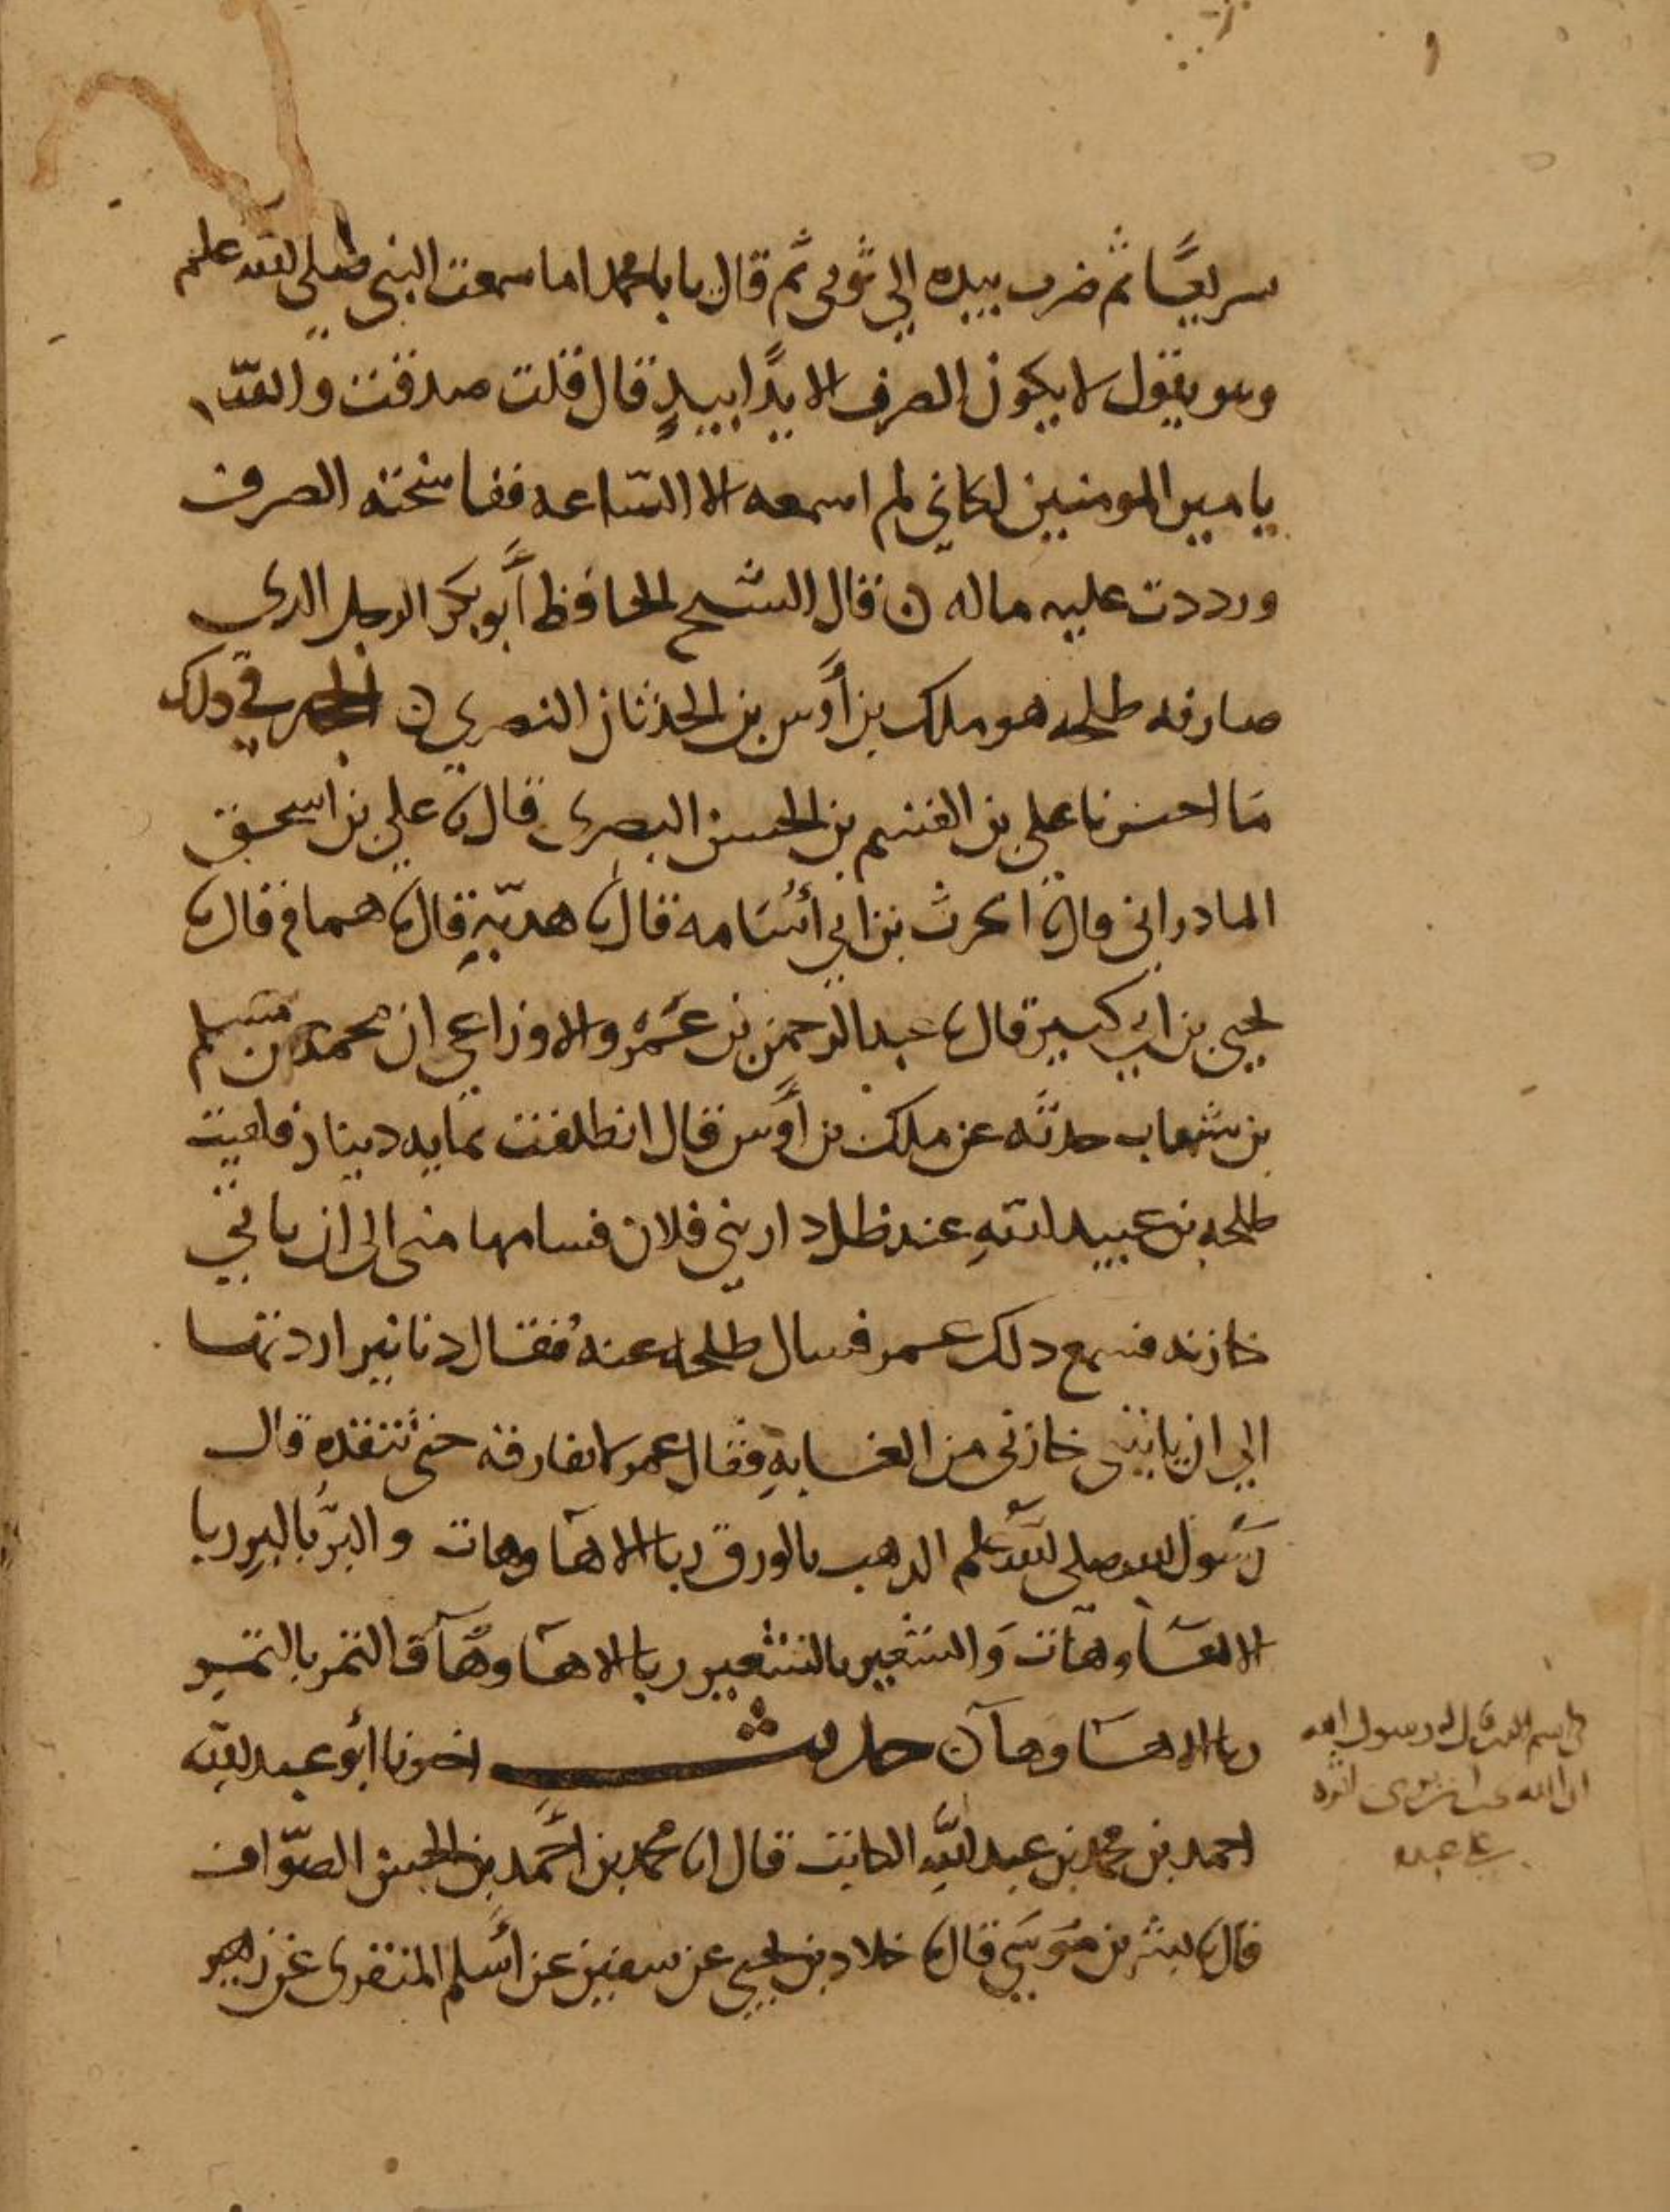 سريعًا ثم ضرب بيده الي ثوبي ثم قال يابا محمد اما سمعت النبي صلى الله علم
وهو يقول لا يكون الصرف الا يدًا بيدٍ قال قلت صدقت والله
يا مير المومنين لكاني لم اسمعه الا الساعه ففاسخته الصرف
ورددت عليه ماله ن قال الشيخ الحافظ أبو بكر الرجل الدي
صارفه طلحه هو ملك بن أوس بن الحدثان النصري ن في دلك
ما اخبرنا علي بن القسم بن الحسن البصرى قال نا علي بن اسحق
المادراني قال نا الحرث بن ابي أسامه قال نا هدبة قال نا همام قال نا
يحيى بن ابي كثير قال نا عبد الرحمن بن عمرو الاوزاعي ان محمد بن مسلم
بن شهاب حدثه عن ملك بن أوس قال انطلقت بمايه دينار فلقيت
طلحه بن عبيد اللهِ عند ظل دار بني فلان فسامها مني الى ان ياتي
خازنه فسمع دلك عمر فسال طلحه عنهُ فقال دنانير اردتها
الي ان ياتيني خازني من الغابهِ فقال عمر لا تفارقه حتى تنقده قال
رسول الله صلى الله علم الدهب بالورق ربا الا ها وهات والبرُّ بالبرِ ربا
الا ها وهات وَالشعير بالشعير ربا الا ها وهآ والتمر بالتمر
ربا الا ها وهآ ن حديث اخبرنا أبو عبد الله
احمد بن محمد بن عبد اللهِ الكاتب قال انا محمد بن أحمد بن الحسن الصوّاف
قال نا بشر بن موسى قال نا خلاد بن يحيى عن سفين عن أسلم المنقرى عن زهير
قال له رسول الله
ان الله يحب ان يرى اثره
على عبده